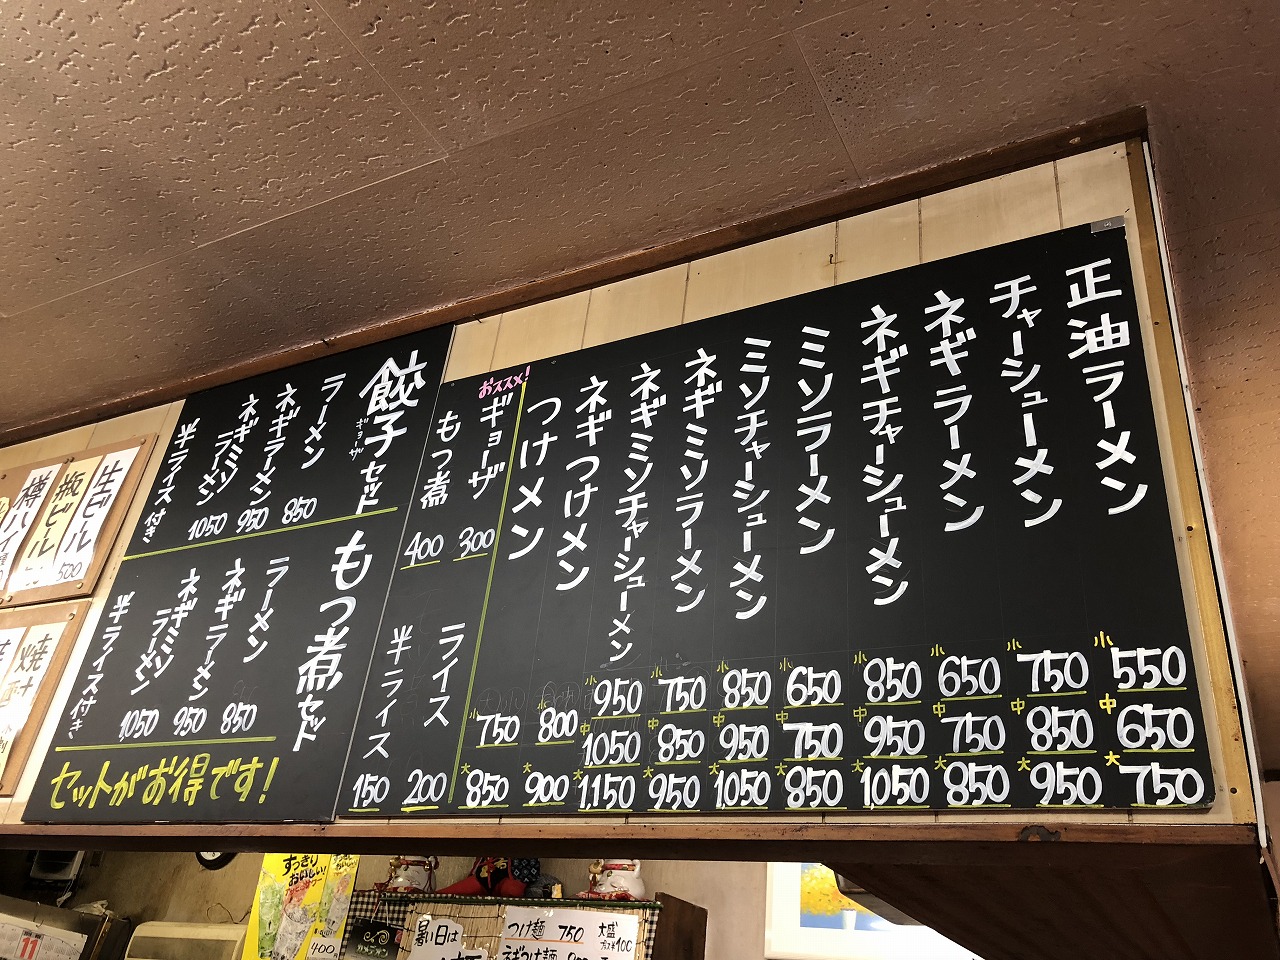 正油ラーメン
小 550
中 650
大 750
チャーシューメン
小 750
中 850
大 950
ネギラーメン
小 650
中 750
大 850
ネギチャーシューメン
小 850
中 950
大 1050
ミソラーメン
小 650
中 750
大 850
ミソチャーシューメン
小 850
中 950
大 1050
ネギミソラーメン
小 750
中 850
大 950
ネギミソチャーシューメン
小 950
中 1050
大 1,150
ネギつけメン
小 800
大 900
つけメン
小 750
大 850
おススメ!
ギョーザ 300
もつ煮 400
ライス 200
半ライス 150
餃子セット
ギョーザ
ラーメン 850
ネギラーメン 950
ネギミソ
ラーメン 1050
半ライス付き
もつ煮セット
ラーメン 850
ネギラーメン 950
ネギミソ
ラーメン 1,050
半ライス付き
セットがお得です!
生ビール 500
瓶ビール
樽ハイ
焼
すっきり
おいしい!
400
暑い日は
つけ麺 750
大盛
ネギつけ麺
11